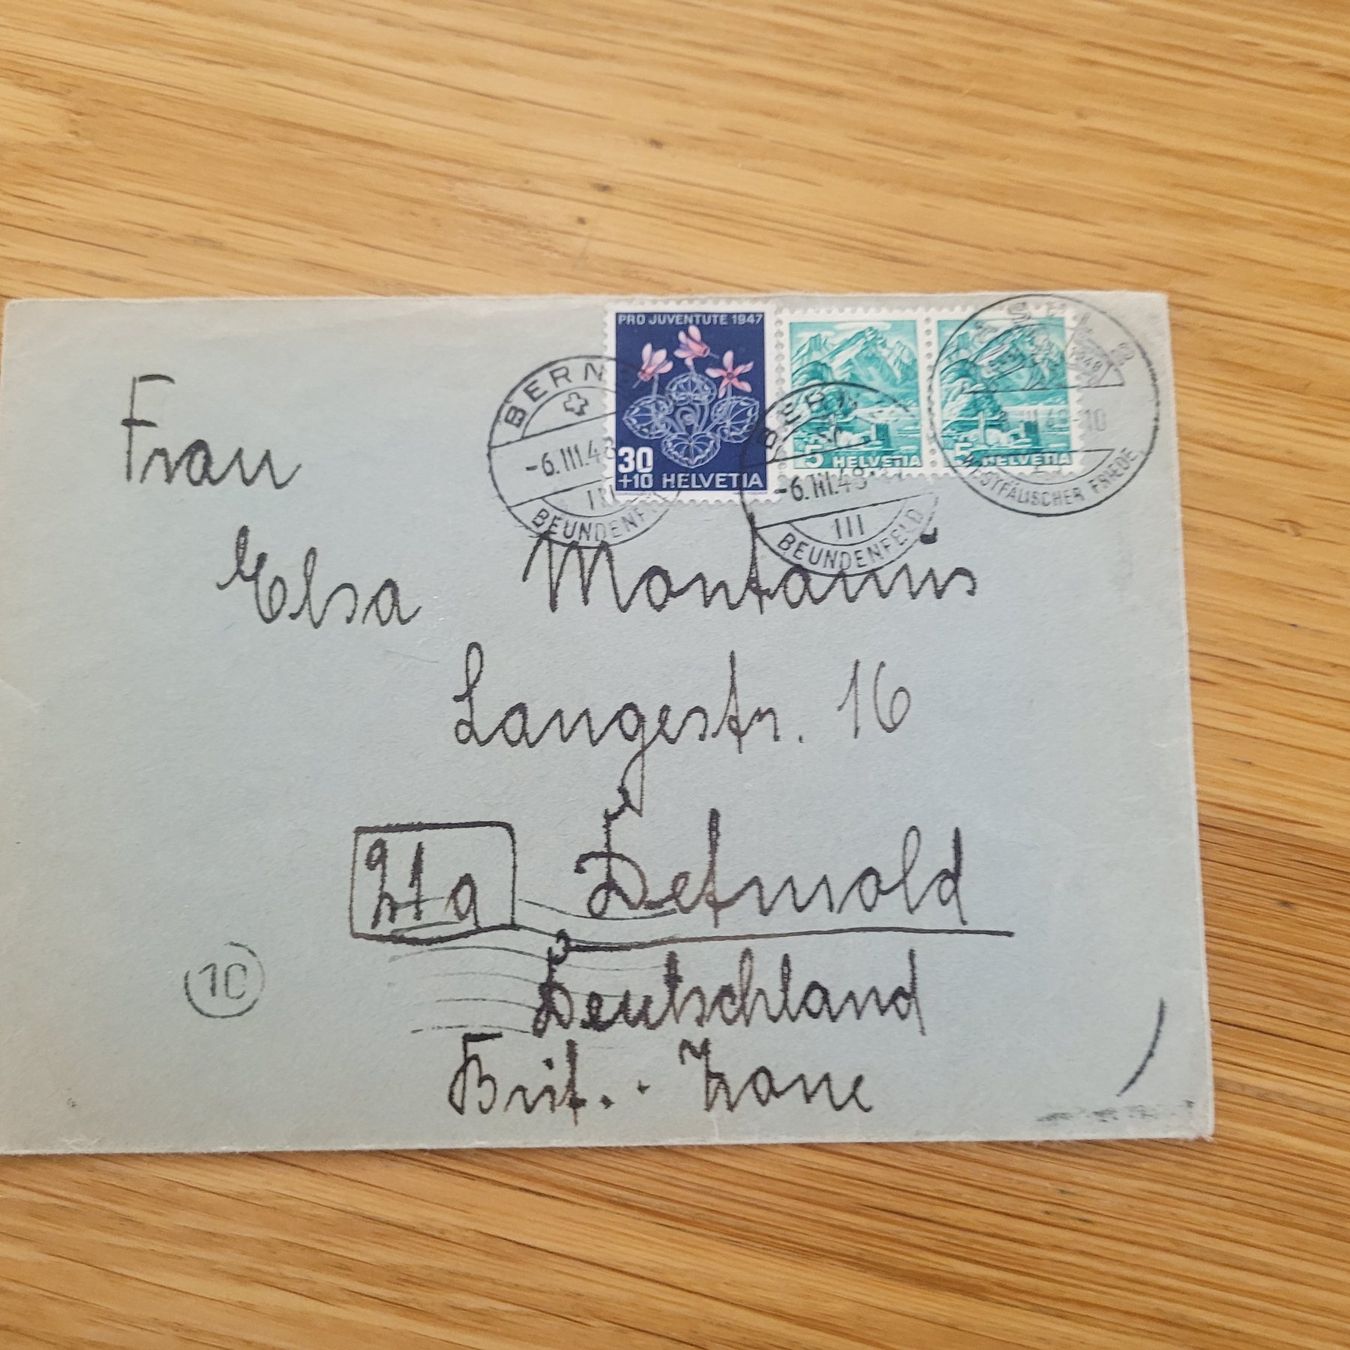 PRO JUVENTUTE 1947
30
+10 HELVETIA
5 HELVETIA
5 HELVETIA
BERN
-6.III.48
III
BEUNDENFELD
BERN
-6.III.48
III
BEUNDENFELD
WESTFÄLISCHER FRIEDE
Frau
Elsa Montanus
Langestr. 16
21a Detmold
Deutschland
Brit. Zone
10